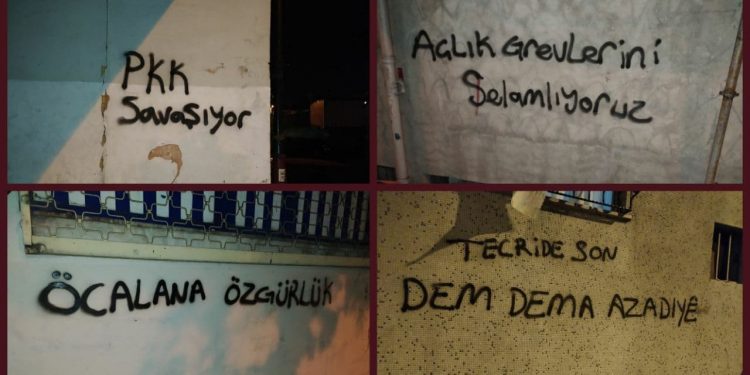 PKK
Savaşıyor
AÇLIK Grevlerini
Şelamlıyoruz
ÖCALANA ÖZGÜRLÜK
TECRİDE SON
DEM DEMA AZADIYE